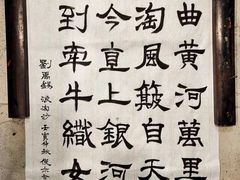 曲黄河萬里
淘風簸自天
今直上銀河
到牽牛織女
劉禹錫 浪淘沙 壬寅